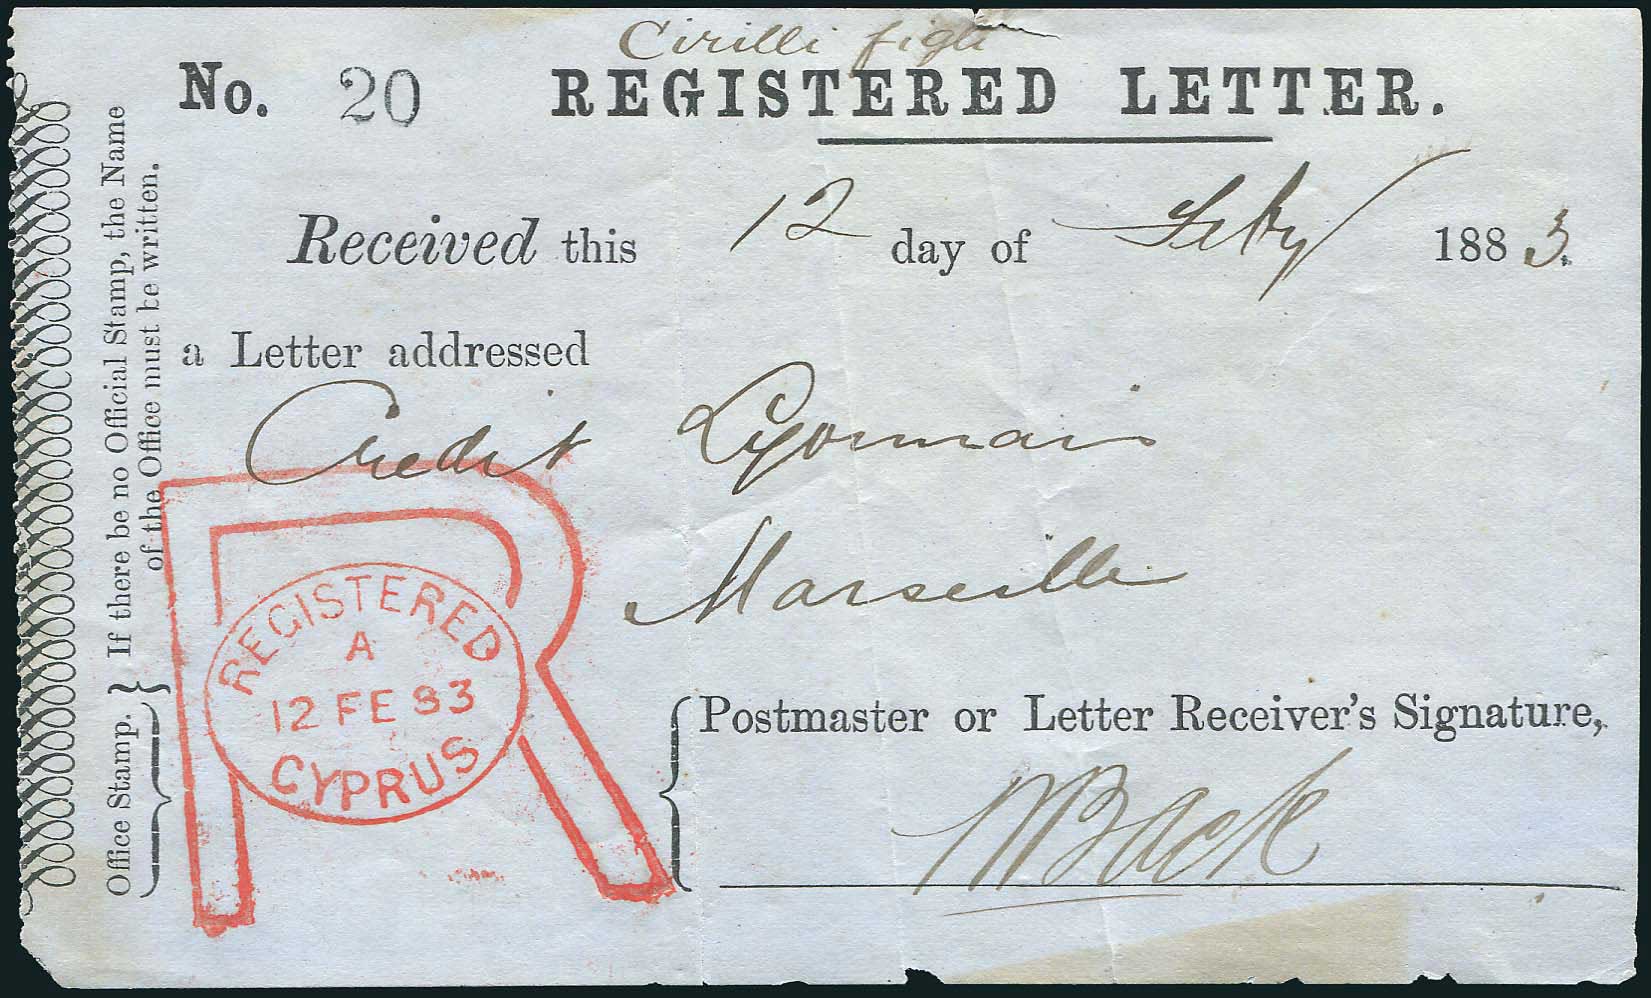 Cirilli figli
No. 20 REGISTERED LETTER.
Received this 12 day of Feby 1883.
a Letter addressed
Credit Lyonnais
Marseille
If there be no Official Stamp, the Name
of the Office must be written.
Office Stamp.
REGISTERED
A
12 FE 83
CYPRUS
Postmaster or Letter Receiver's Signature,
Back